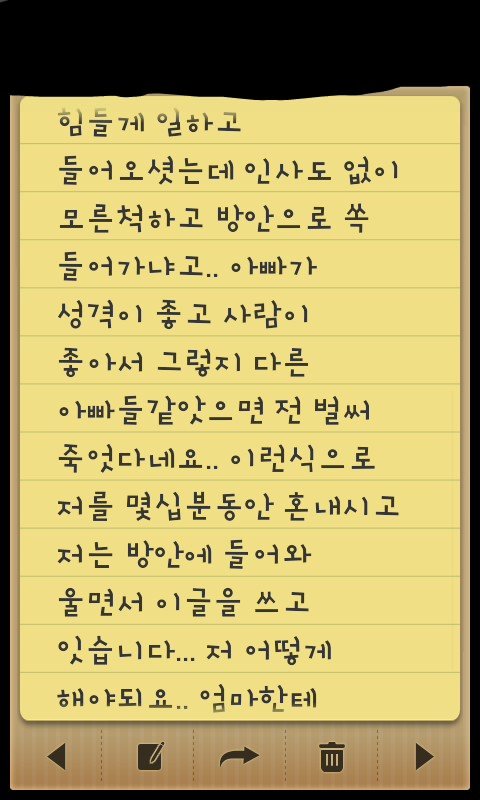 힘들게 일하고
들어오셧는데 인사도 없이
모른척하고 방안으로 쏙
들어가냐고.. 아빠가
성격이 좋고 사람이
좋아서 그렇지 다른
아빠들같앗으면 전 벌써
죽엇다네요.. 이런식으로
저를 몇십분동안 혼내시고
저는 방안에 들어와
울면서 이글을 쓰고
잇습니다... 저 어떻게
해야되요.. 엄마한테